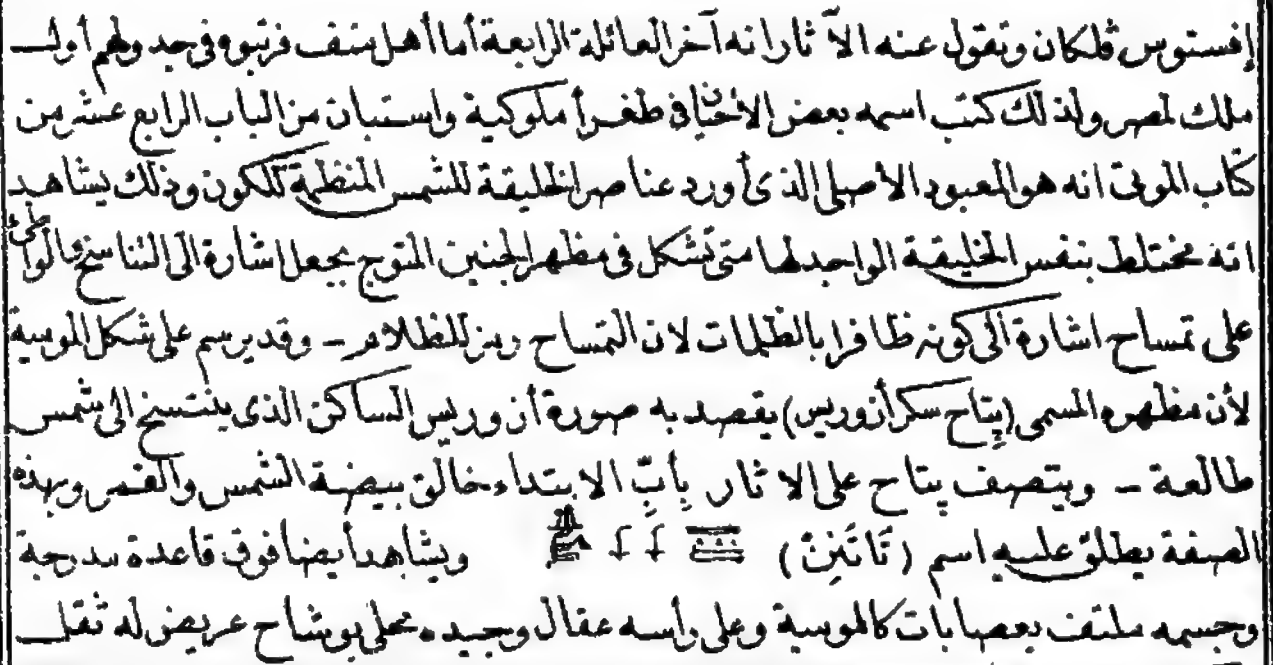 إفستوس ڤلكان وتقول عنه الآثار انه آخر العائلة الرابعة أما أهل منف فرتبوه فى جدولهم أول
ملك لمصر ولذلك كتب اسمه بعض الاحيان فى طغرا ملوكية واستبان من الباب الرابع عشر من
كتاب الموتى انه هو المعبود الأصلى الذى أورد عناصر الخليقة للشمس المنظمة للكون وذلك يشاهد
انه مختلط بنفس الخليقة الواجد لها متى تشكل فى مظهر الجنين المتوج بجعل اشارة الى التناسخ الواطئ
على تمساح اشارة الى كونه ظافرا بالظلمات لان التمساح رمز للظلام - وقد يرسم على شكل الموسية
لأن مظهره المسمى (پتاح سكر أزوريس) يقصد به صورة أزوريس الساكن الذى ينتسخ الى شمس
طالعة - ويتصف پتاح على الاثار بِأَبِّ الابتداء خالق بيضة الشمس والقمر وبهذه
الصفة يطلق عليه اسم (تَاتَنِنْ) ويشاهد أيضا فوق قاعدة مدرجة
وجسمه ملتف بعصابات كالموسية وعلى رأسه عقال وجيده محلى بوشاح عريض له ثقل